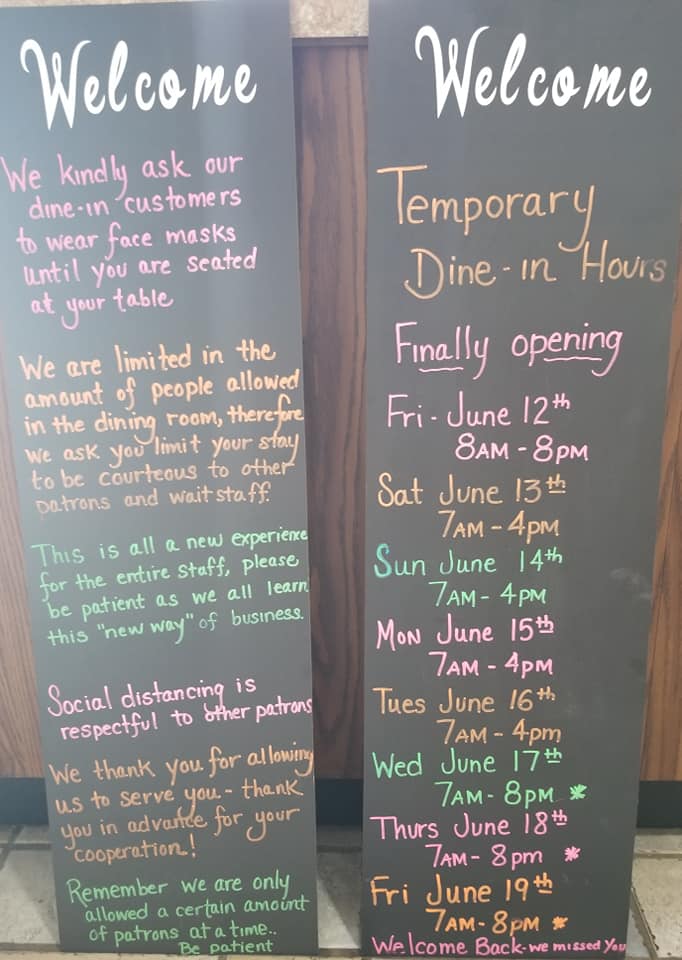 Welcome
We kindly ask our
dine-in customers
to wear face masks
until you are seated
at your table
We are limited in the
amount of people allowed
in the dining room, therefore
we ask you limit your stay
to be courteous to other
patrons and waitstaff.
This is all a new experience
for the entire staff, please
be patient as we all learn
this "new way" of business.
Social distancing is
respectful to other patrons
We thank you for allowing
us to serve you - thank
you in advance for your
cooperation!
Remember we are only
allowed a certain amount
of patrons at a time..
Be patient
Welcome
Temporary
Dine-in Hours
Finally opening
Fri - June 12th
8AM - 8PM
Sat June 13th
7AM - 4PM
Sun June 14th
7AM - 4PM
Mon June 15th
7AM - 4PM
Tues June 16th
7AM - 4pm
Wed June 17th
7AM - 8PM *
Thurs June 18th
7AM - 8pm *
Fri June 19th
7AM - 8PM *
Welcome Back - we missed You